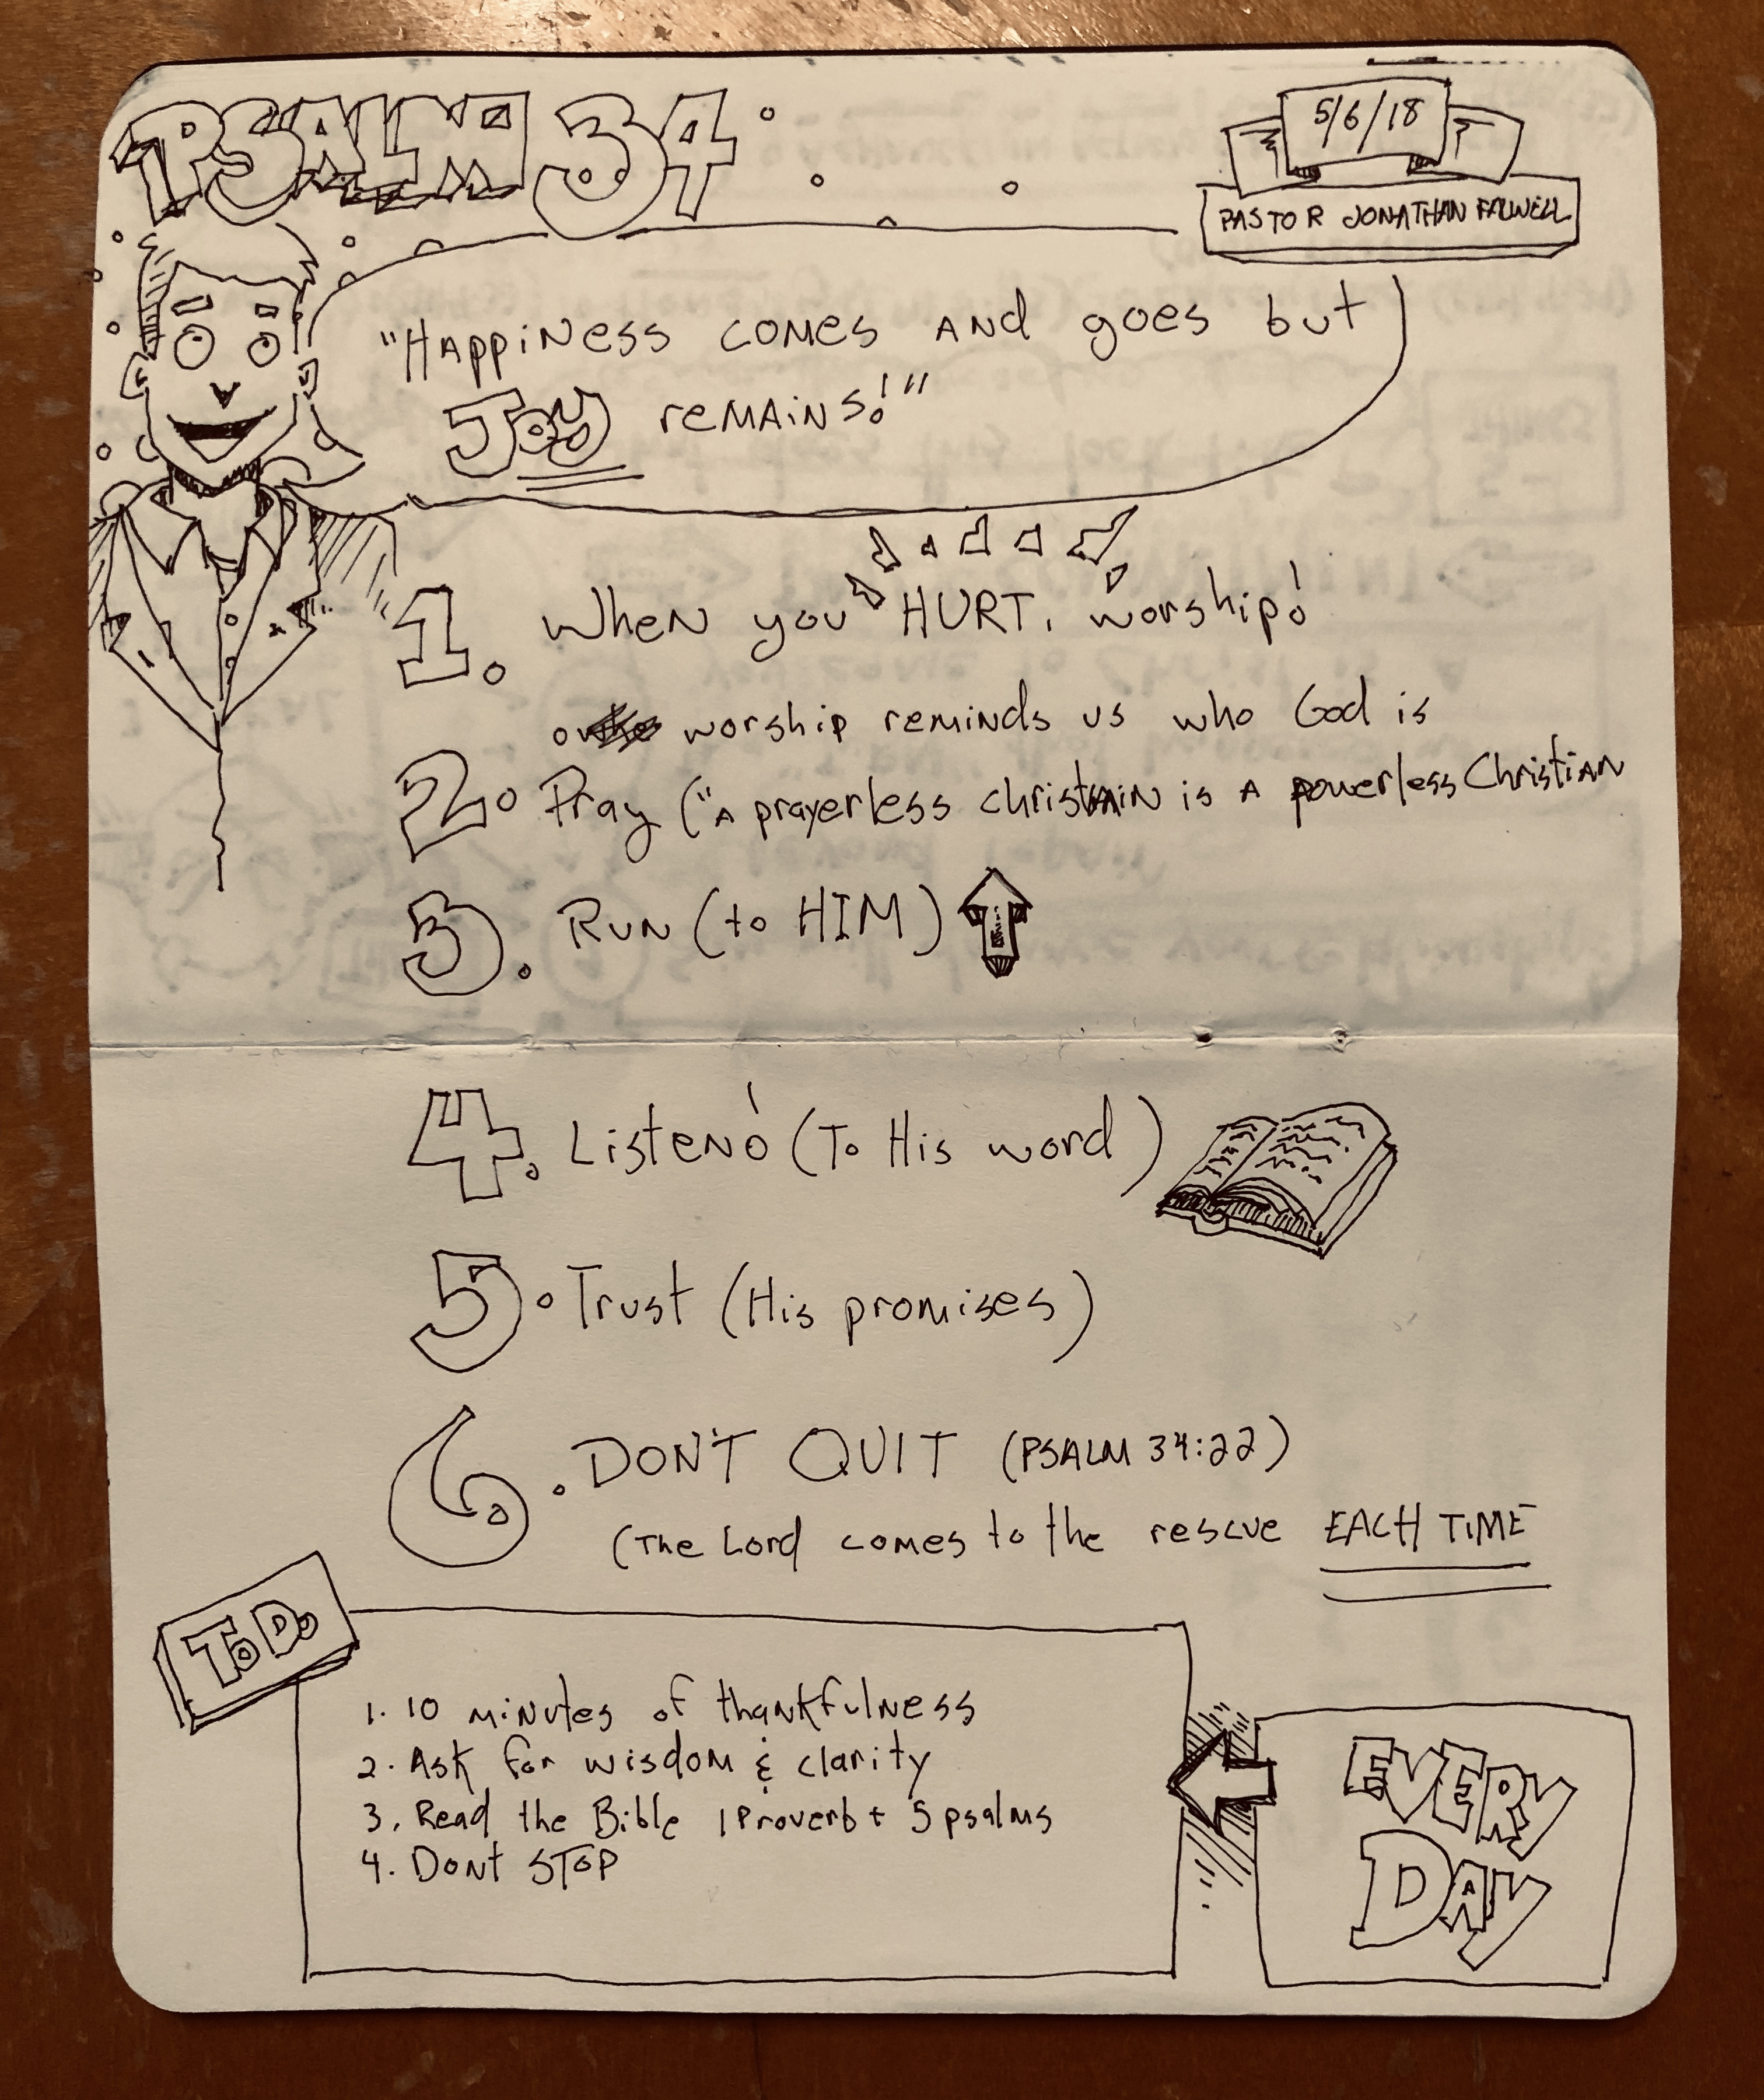 PSALM 34
5/6/18
PASTOR JONATHAN FALWELL
"HAppiNess comes AND goes but
Joy remains!"
1. When you HURT, worship!
worship reminds us who God is
2. Pray ("A prayerless christain is A powerless Christian
3. RUN (to HIM)
4. Listen! (To His word)
5. Trust (His promises)
6. DON'T QUIT (PSALM 34:22)
(The Lord comes to the rescue EACH TIME
To Do
1. 10 minutes of thankfulness
2. Ask for wisdom & clarity
3. Read the Bible 1 Proverb + 5 psalms
4. Dont STOP
EVERY
DAY